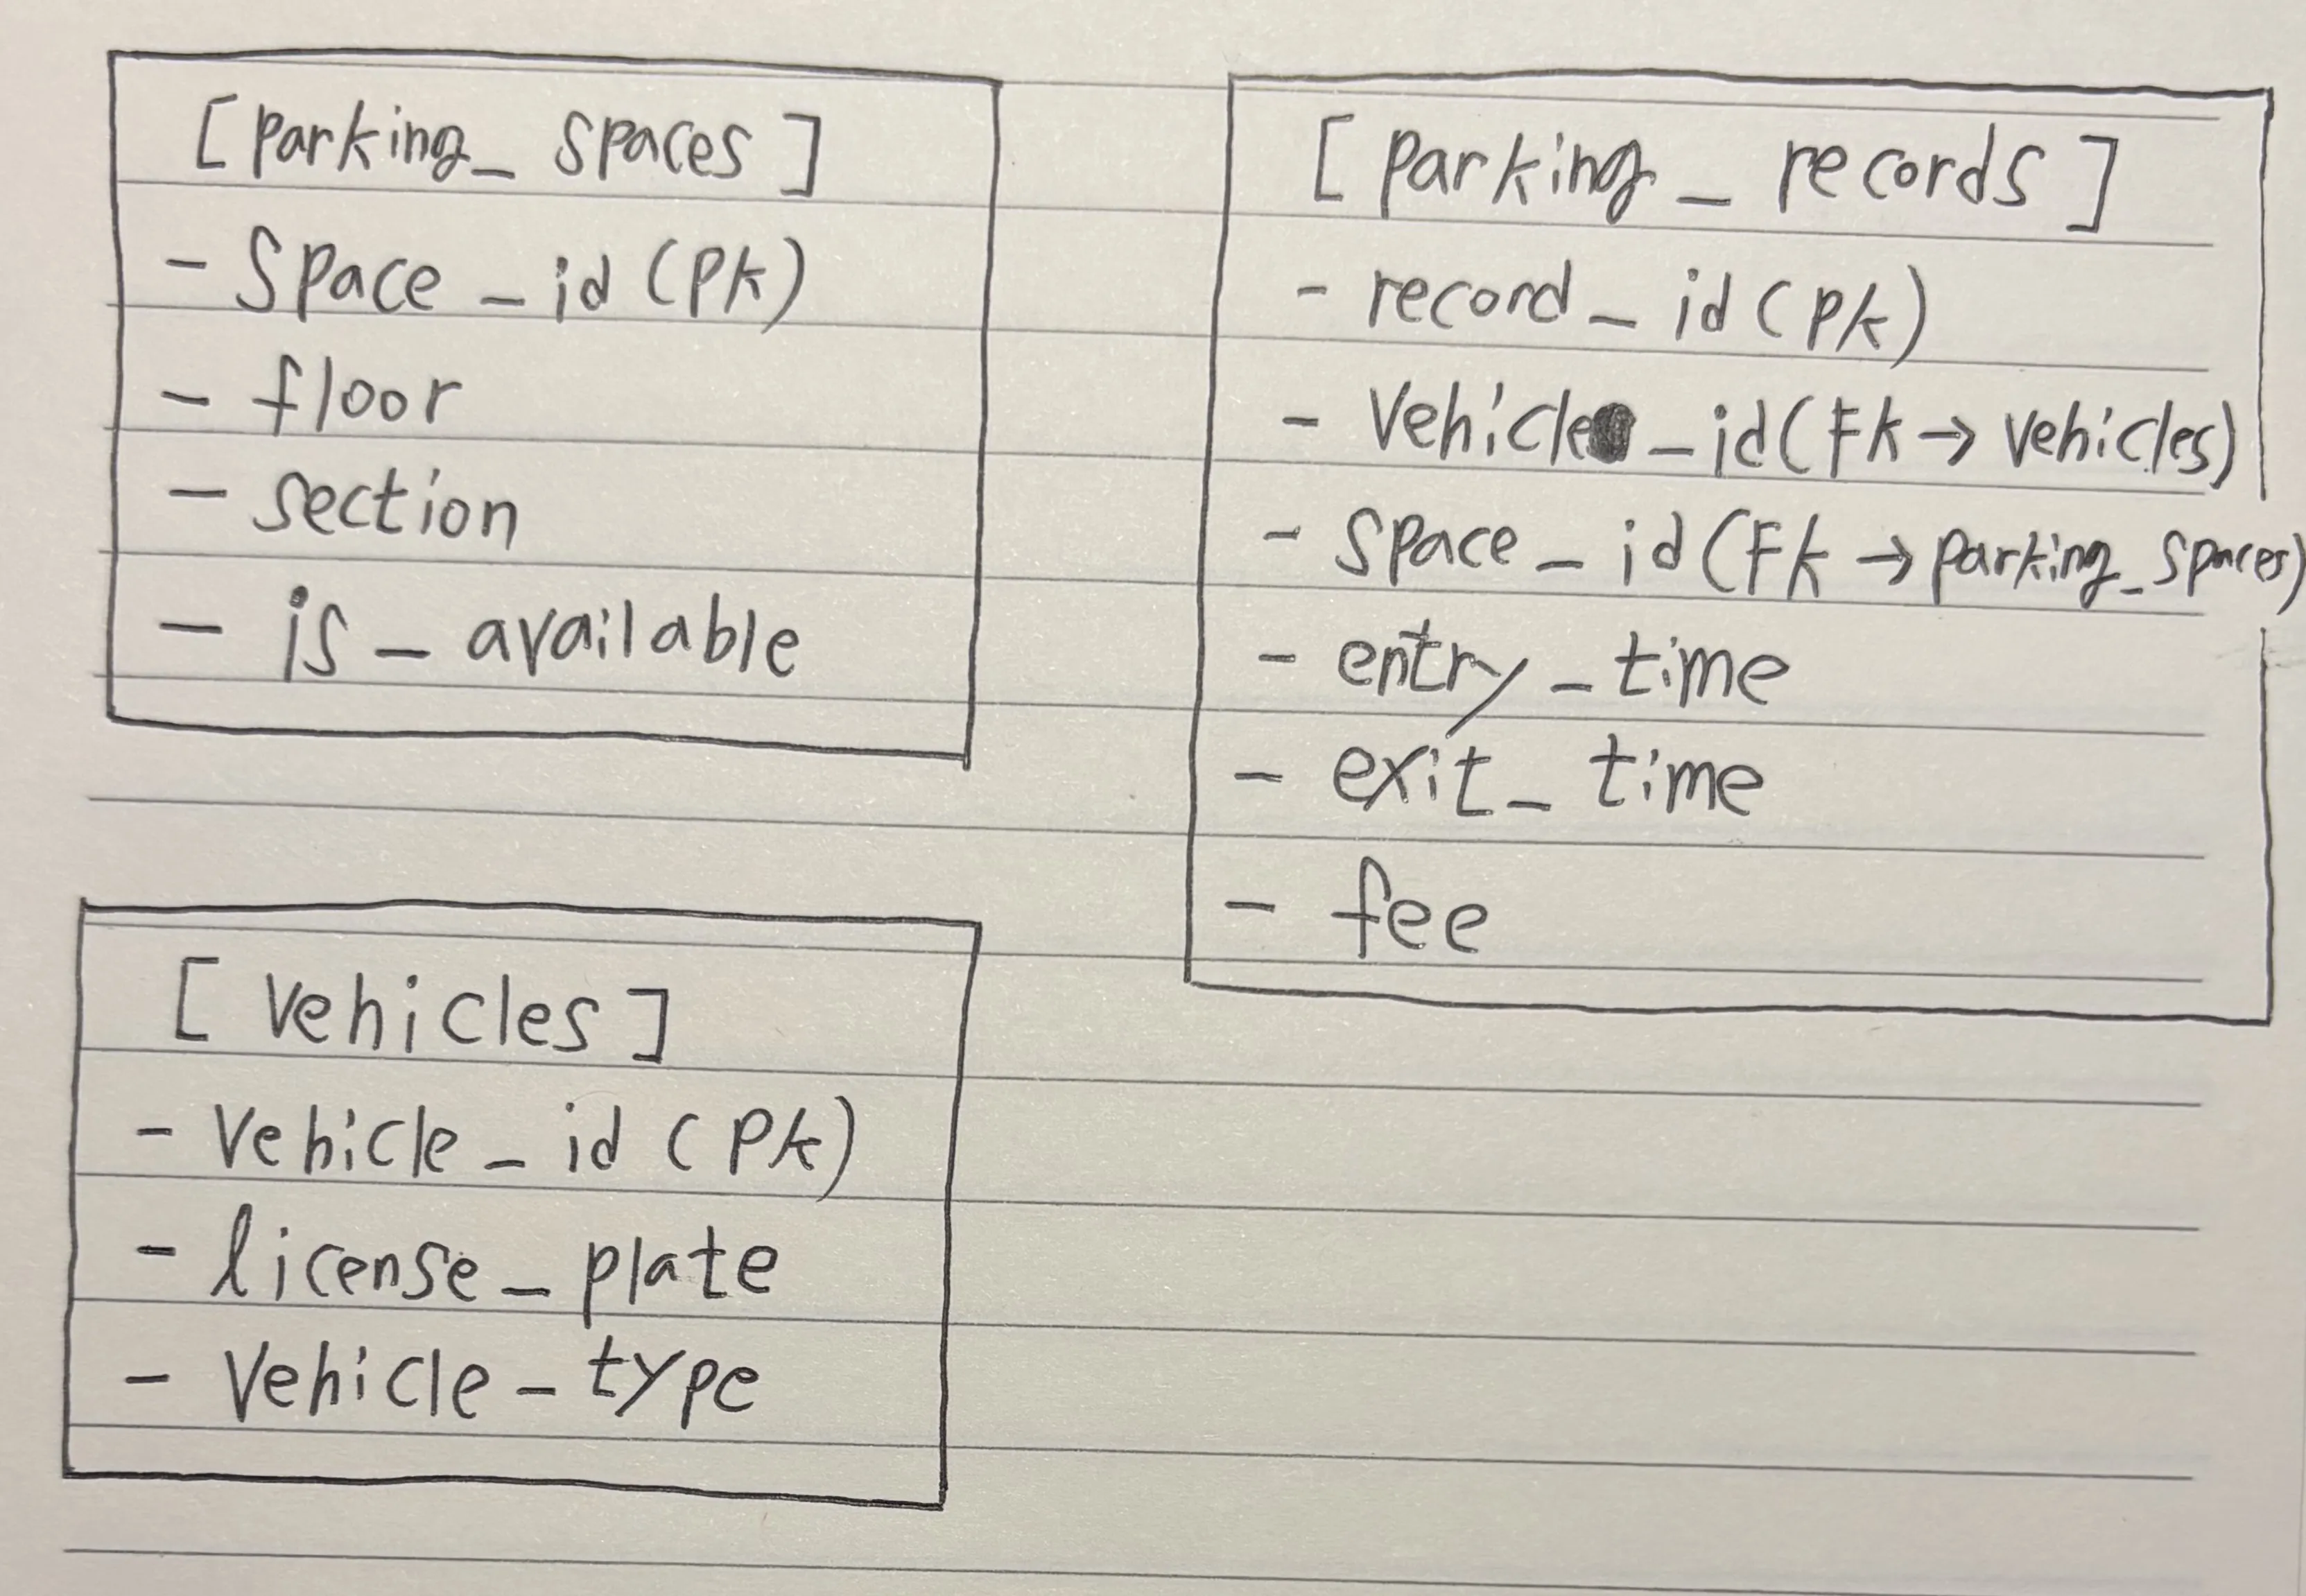 [parking_spaces]
- space_id (PK)
- floor
- section
- is_available
[parking_records]
- record_id (PK)
- vehicle_id (FK → vehicles)
- space_id (FK → parking_spaces)
- entry_time
- exit_time
- fee
[vehicles]
- vehicle_id (PK)
- license_plate
- vehicle_type